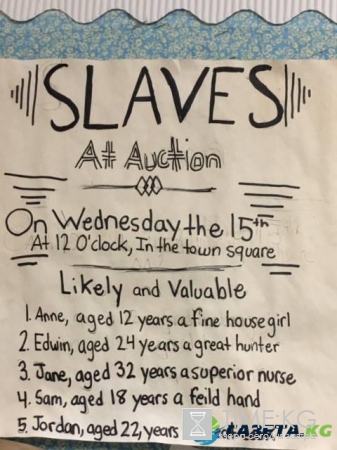 SLAVES
At Auction
On Wednesday the 15th
At 12 O'clock, In the town square
Likely and Valuable
1. Anne, aged 12 years a fine house girl
2. Edwin, aged 24 years a great hunter
3. Jane, aged 32 years a superior nurse
4. Sam, aged 18 years a feild hand
5. Jordan, aged 22, years
TIME.KG
GAZETA.KG